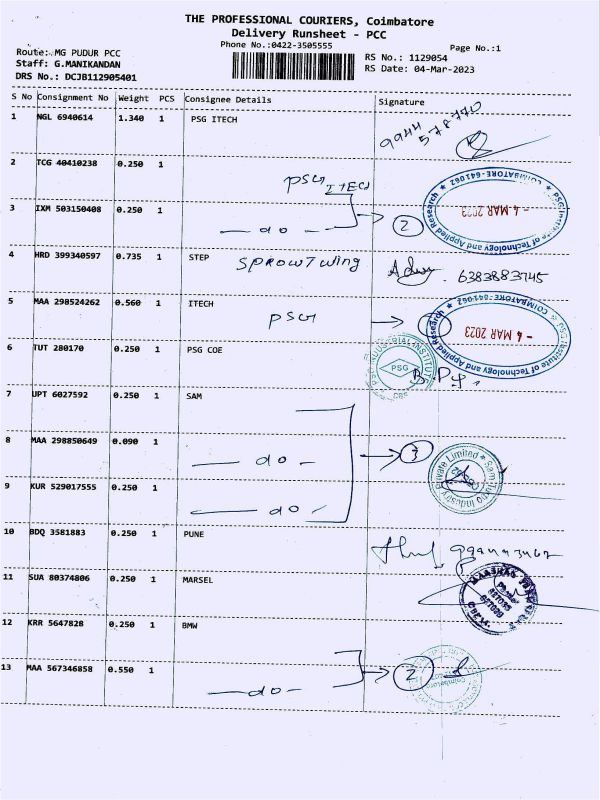 THE PROFESSIONAL COURIERS, Coimbatore
Delivery Runsheet - PCC
Phone No.:0422-3505555
Page No.:1
Route: MG PUDUR PCC
RS No.: 1129054
Staff: G.MANIKANDAN
RS Date: 04-Mar-2023
DRS No.: DCJB112905401
S No Consignment No Weight PCS Consignee Details Signature
1 NGL 6940614 1.340 1 PSG ITECH
9944
578770
2 TCG 40410238 0.250 1
PSG ITECH
3 IXM 503150408 0.250 1
— do — 2
PSG Institute of Technology and Applied Research ★ COIMBATORE-641 062 ★
- 4 MAR 2023
4 HRD 399340597 0.735 1 STEP
5 MAA 298524262 0.560 1 ITECH
PSG 1
PSG Institute of Technology and Applied Research ★ COIMBATORE-641 062 ★
- 4 MAR 2023
6 TUT 280170 0.250 1 PSG COE
PSG INDUSTRIAL INSTITUTE
PSG
7 UPT 6027592 0.250 1 SAM
8 MAA 298850649 0.090 1
— do — 3
Private Limited
9 KUR 529017555 0.250 1
— do —
10 BDQ 3581883 0.250 1 PUNE
11 SUA 80374806 0.250 1 MARSEL
12 KRR 5647828 0.250 1 BMW
13 MAA 567346858 0.550 1
— do — 2
Coimbatore